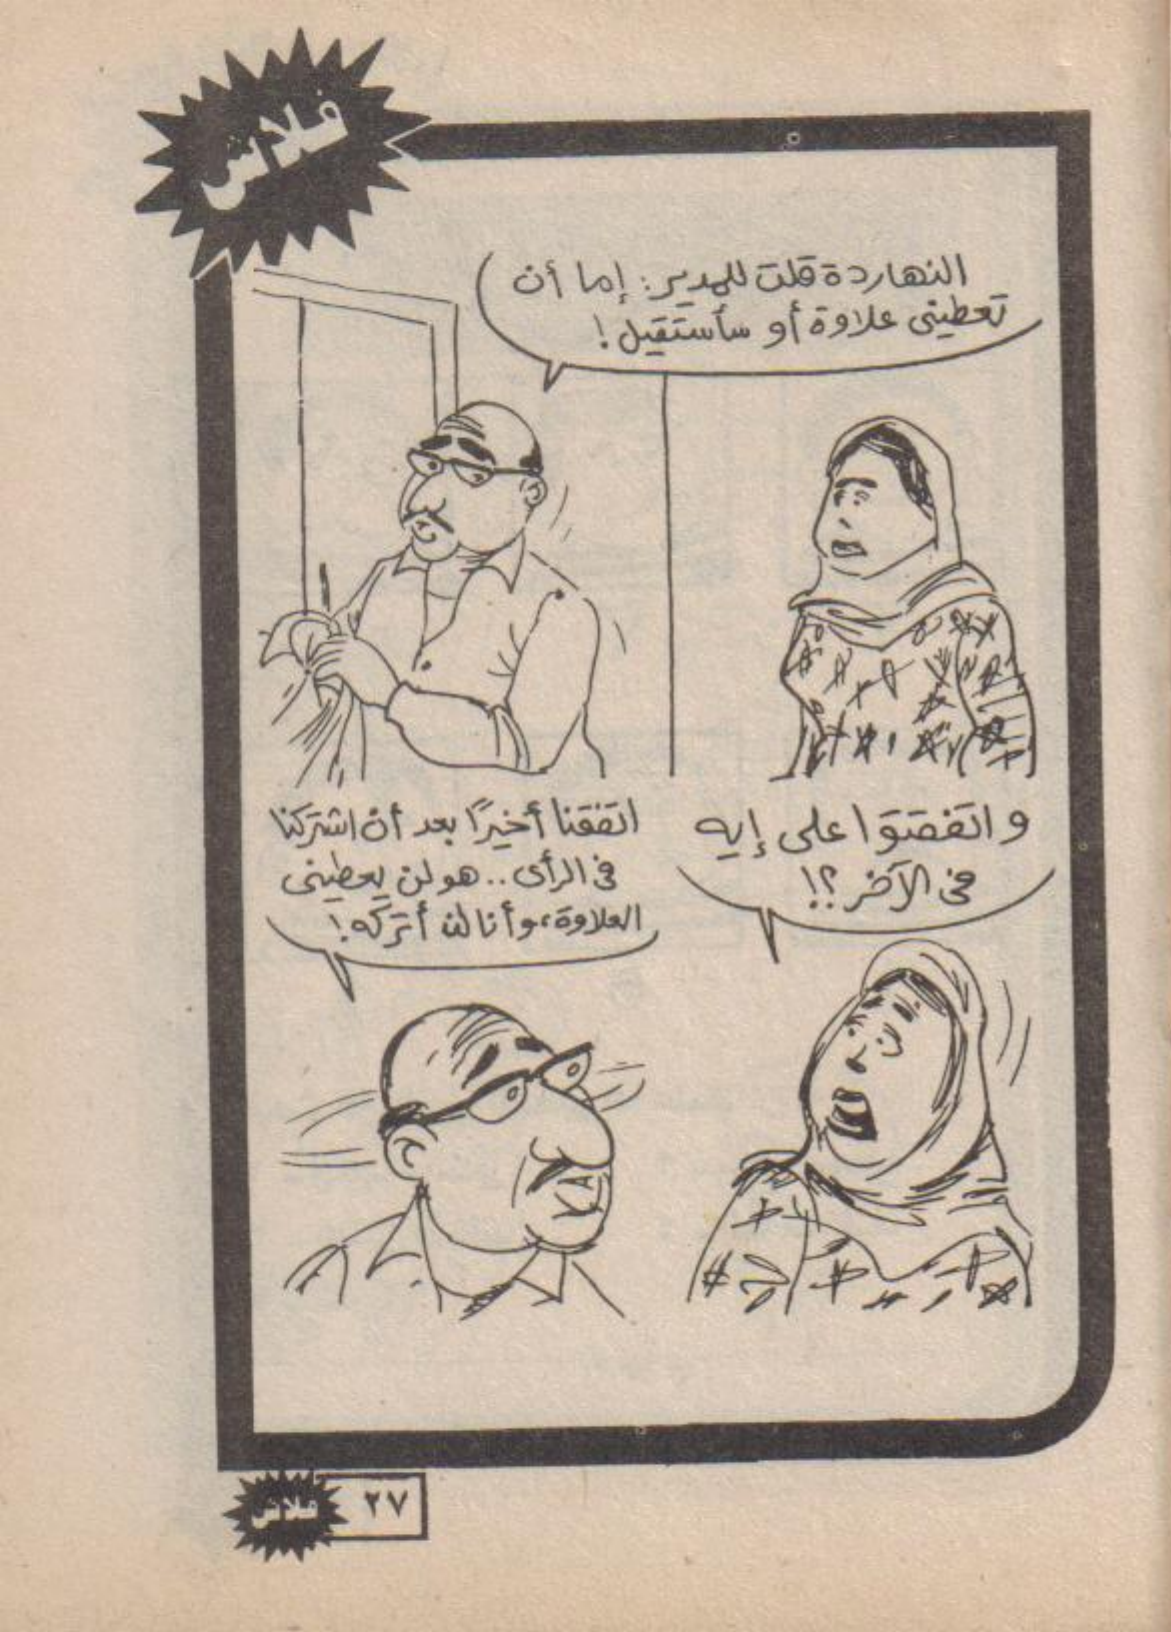 فلاش
النهاردة قلت للمدير: إما أن
تعطينى علاوة أو سأستقيل!
واتفقتوا على إيه
فى الآخر؟!
اتفقنا أخيرًا بعد أن اشتركنا
فى الرأى.. هو لن يعطينى
العلاوة، وأنا لن أتركه!
٢٧
فلاش